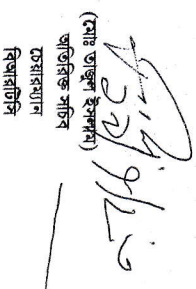 (মোঃ তাজুল ইসলাম)
অতিরিক্ত সচিব
চেয়ারম্যান
বিআরটিসি